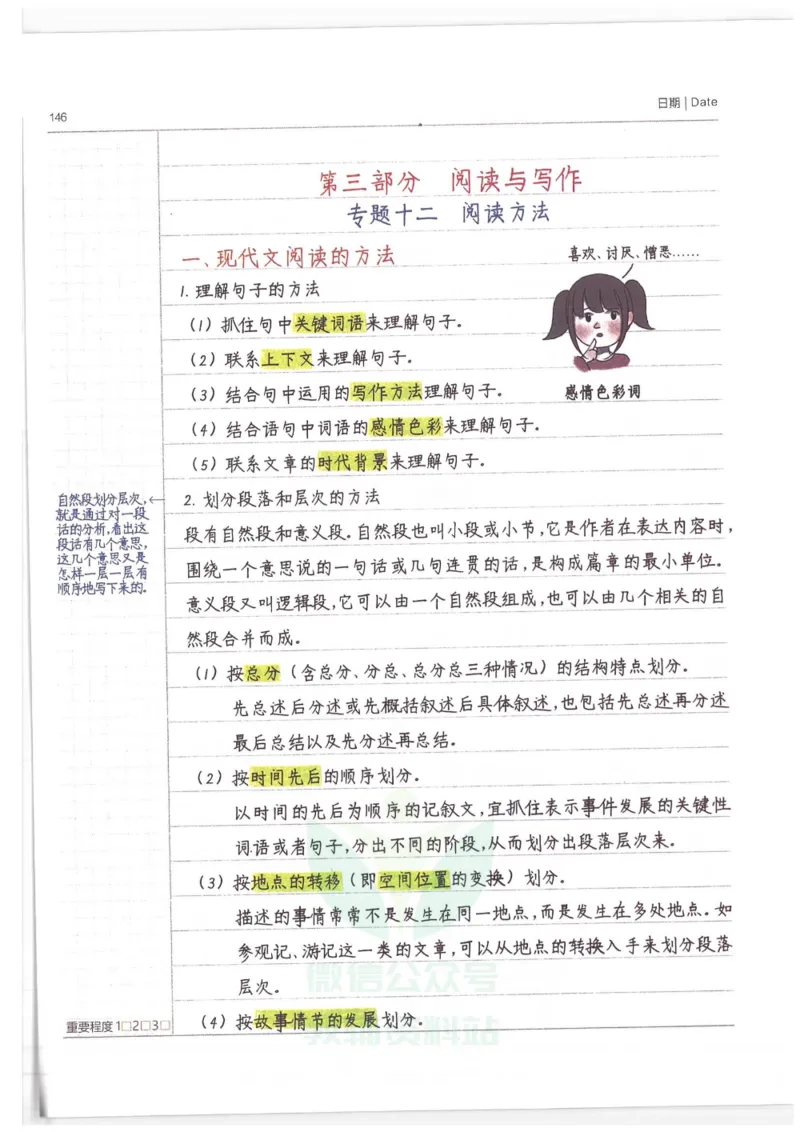 146
日期 | Date
第三部分 阅读与写作
专题十二 阅读方法
一、现代文阅读的方法
喜欢、讨厌、憎恶……
感情色彩词
1. 理解句子的方法
(1) 抓住句中关键词语来理解句子.
(2) 联系上下文来理解句子.
(3) 结合句中运用的写作方法理解句子.
(4) 结合语句中词语的感情色彩来理解句子.
(5) 联系文章的时代背景来理解句子.
自然段划分层次,←
就是通过对一段
话的分析,看出这
段话有几个意思,
这几个意思又是
怎样一层一层有
顺序地写下来的.
2. 划分段落和层次的方法
段有自然段和意义段.自然段也叫小段或小节,它是作者在表达内容时,
围绕一个意思说的一句话或几句连贯的话,是构成篇章的最小单位.
意义段又叫逻辑段,它可以由一个自然段组成,也可以由几个相关的自
然段合并而成.
(1) 按总分(含总分、分总、总分总三种情况)的结构特点划分.
先总述后分述或先概括叙述后具体叙述,也包括先总述再分述
最后总结以及先分述再总结.
(2) 按时间先后的顺序划分.
以时间的先后为顺序的记叙文,宜抓住表示事件发展的关键性
词语或者句子,分出不同的阶段,从而划分出段落层次来.
(3) 按地点的转移(即空间位置的变换)划分.
描述的事情常常不是发生在同一地点,而是发生在多处地点.如
参观记、游记这一类的文章,可以从地点的转换入手来划分段落
层次.
(4) 按故事情节的发展划分.
重要程度 1□2□3□
微信公众号
教辅资料站